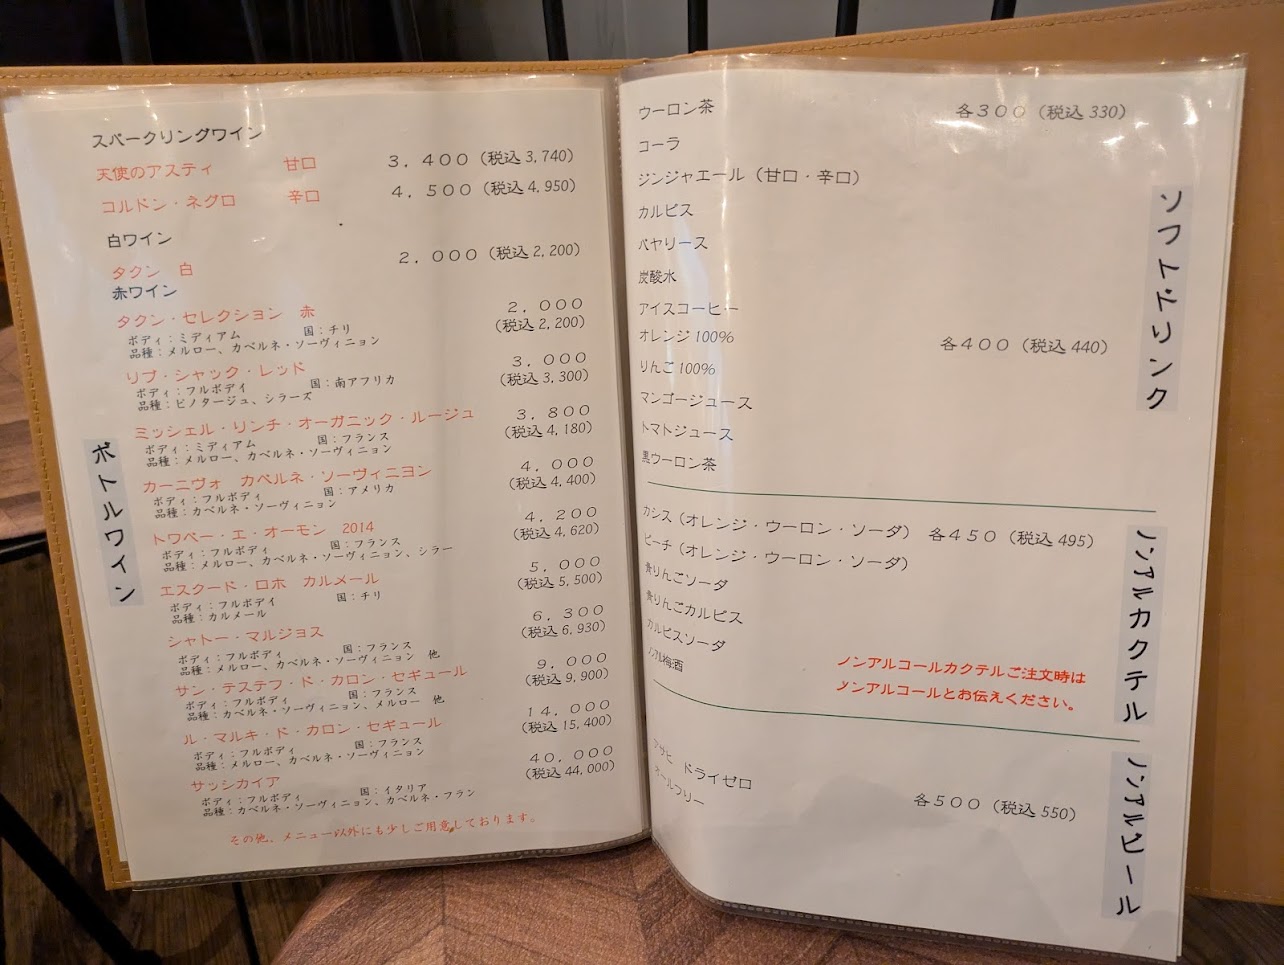 スパークリングワイン
天使のアスティ 甘口 3,400（税込3,740）
コルドン・ネグロ 辛口 4,500（税込4,950）
白ワイン
タクン 白 2,000（税込2,200）
赤ワイン
タクン・セレクション 赤 2,000
ボディ：ミディアム 国：チリ （税込2,200）
品種：メルロー、カベルネ・ソーヴィニョン
リブ・シャック・レッド 3,000
ボディ：フルボディ 国：南アフリカ （税込3,300）
品種：ピノタージュ、シラーズ
ミッシェル・リンチ・オーガニック・ルージュ 3,800
ボディ：ミディアム 国：フランス （税込4,180）
品種：メルロー、カベルネ・ソーヴィニョン
カーニヴォ カベルネ・ソーヴィニヨン 4,000
ボディ：フルボディ 国：アメリカ （税込4,400）
品種：カベルネ・ソーヴィニョン
トワベー・エ・オーモン 2014 4,200
ボディ：フルボディ 国：フランス （税込4,620）
品種：メルロー、カベルネ・ソーヴィニョン、シラー
エスクード・ロホ カルメール 5,000
ボディ：フルボデイ 国：チリ （税込5,500）
品種：カルメール
シャトー・マルジョス 6,300
ボディ：フルボディ 国：フランス （税込6,930）
品種：メルロー、カベルネ・ソーヴィニョン 他
サン・テステフ・ド・カロン・セギュール 9,000
ボディ：フルボディ 国：フランス （税込9,900）
品種：カベルネ・ソーヴィニョン、メルロー 他
ル・マルキ・ド・カロン・セギュール 14,000
ボディ：フルボディ 国：フランス （税込15,400）
品種：メルロー、カベルネ・ソーヴィニョン
サッシカイア 40,000
ボディ：フルボディ 国：イタリア （税込44,000）
品種：カベルネ・ソーヴィニョン、カベルネ・フラン
その他、メニュー以外にも少しご用意しております。
ボトルワイン
ウーロン茶 各300（税込330）
コーラ
ジンジャエール（甘口・辛口）
カルピス
バヤリース
炭酸水
アイスコーヒー
オレンジ100% 各400（税込440）
りんご100%
マンゴージュース
トマトジュース
黒ウーロン茶
ソフトドリンク
カシス（オレンジ・ウーロン・ソーダ） 各450（税込495）
ピーチ（オレンジ・ウーロン・ソーダ）
青りんごソーダ
青りんごカルピス
カルピスソーダ
ノンアル梅酒
ノンアルコールカクテルご注文時は
ノンアルコールとお伝えください。
ノンアルカクテル
アサヒ ドライゼロ
オールフリー 各500（税込550）
ノンアルビール